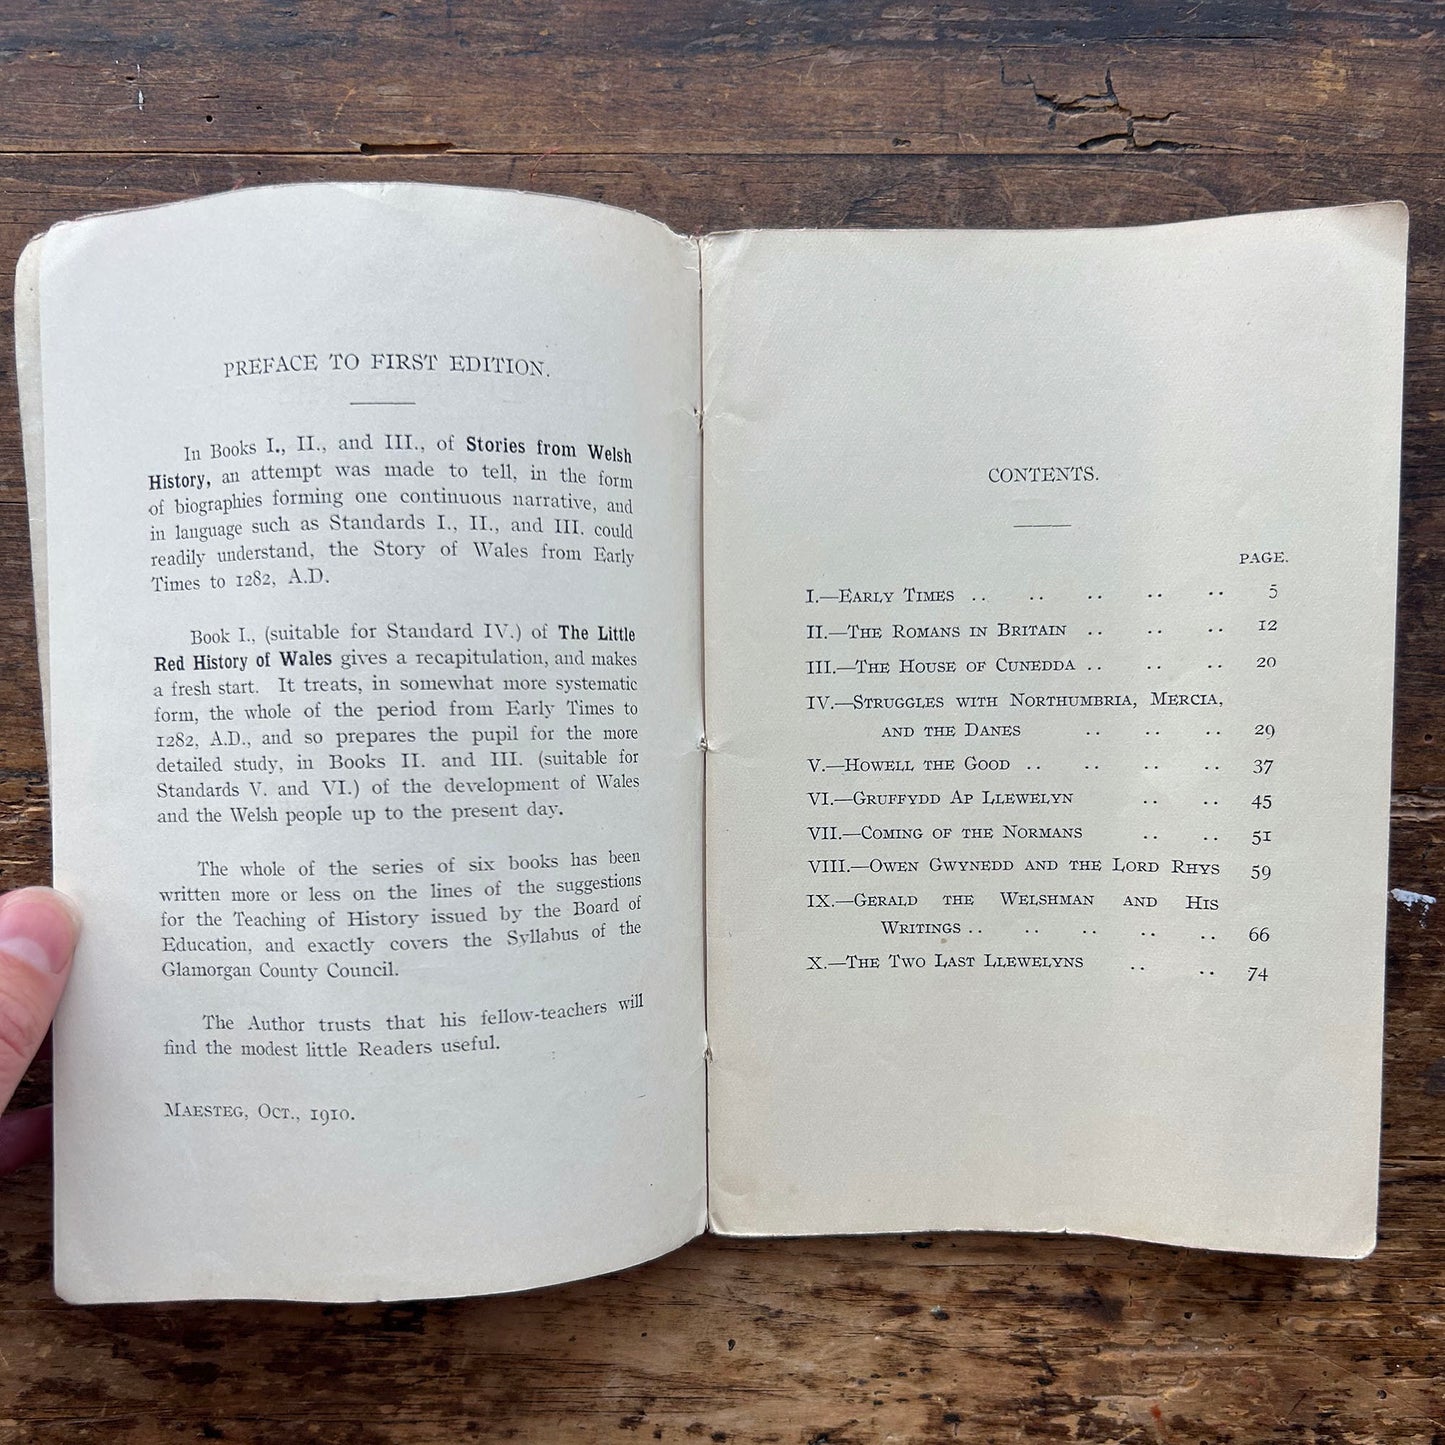 PREFACE TO FIRST EDITION.
In Books I., II., and III., of Stories from Welsh
History, an attempt was made to tell, in the form
of biographies forming one continuous narrative, and
in language such as Standards I., II., and III. could
readily understand, the Story of Wales from Early
Times to 1282, A.D.
Book I., (suitable for Standard IV.) of The Little
Red History of Wales gives a recapitulation, and makes
a fresh start. It treats, in somewhat more systematic
form, the whole of the period from Early Times to
1282, A.D., and so prepares the pupil for the more
detailed study, in Books II. and III. (suitable for
Standards V. and VI.) of the development of Wales
and the Welsh people up to the present day.
The whole of the series of six books has been
written more or less on the lines of the suggestions
for the Teaching of History issued by the Board of
Education, and exactly covers the Syllabus of the
Glamorgan County Council.
The Author trusts that his fellow-teachers will
find the modest little Readers useful.
Maesteg, Oct., 1910.
CONTENTS.
PAGE.
I.—Early Times .. .. .. .. .. 5
II.—The Romans in Britain .. .. .. 12
III.—The House of Cunedda .. .. .. 20
IV.—Struggles with Northumbria, Mercia,
and the Danes .. .. .. 29
V.—Howell the Good .. .. .. .. 37
VI.—Gruffydd Ap Llewelyn .. .. 45
VII.—Coming of the Normans .. .. 51
VIII.—Owen Gwynedd and the Lord Rhys 59
IX.—Gerald the Welshman and His
Writings .. .. .. .. .. 66
X.—The Two Last Llewelyns .. .. 74